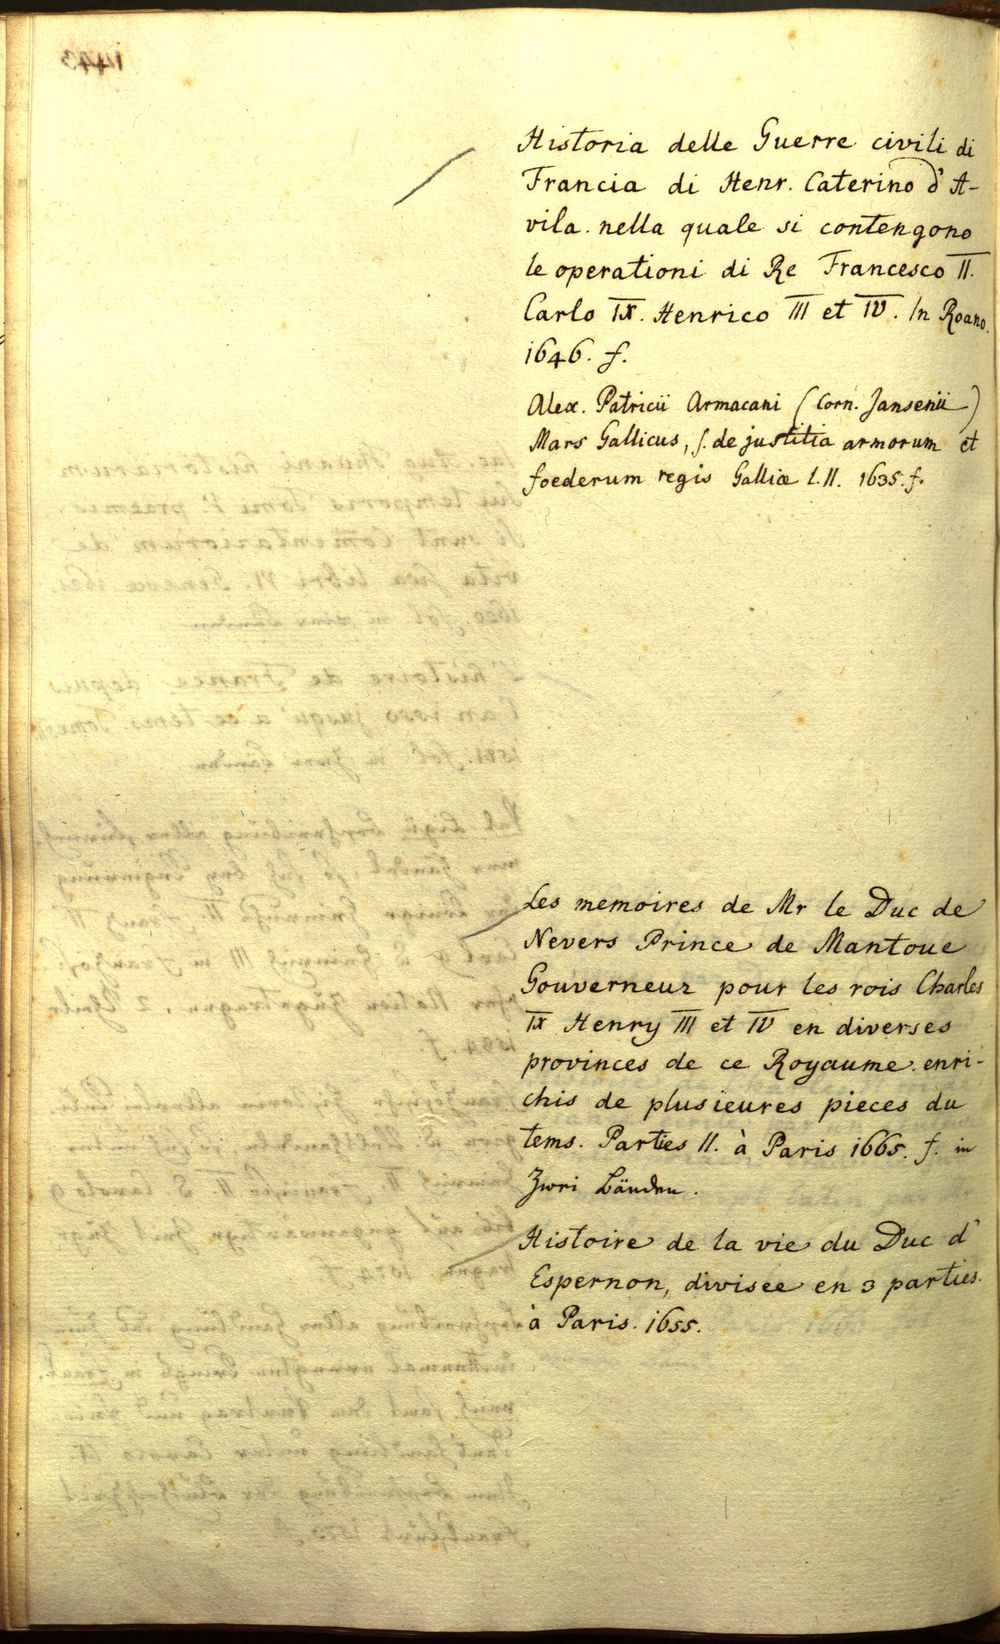 Historia delle Guerre civili di
Francia di Henr. Caterino d'A-
vila. nella quale si contengono
le operationi di Re Francesco II.
Carlo IX. Henrico III et IV. In Roano.
1646. f.
Alex. Patricii Armacani (Corn. Jansenii)
Mars Gallicus, s. de justitia armorum et
foederum regis Galliæ L. II. 1635. f.
Les memoires de Mr le Duc de
Nevers Prince de Mantoue
Gouverneur pour les rois Charles
IX Henry III et IV en diverses
provinces de ce Royaume. enri-
chis de plusieures pieces du
tems. Parties II. à Paris 1665. f. in
Zwei Bänden.
Histoire de la vie du Duc d'
Espernon, divisee en 3 parties.
à Paris. 1655.